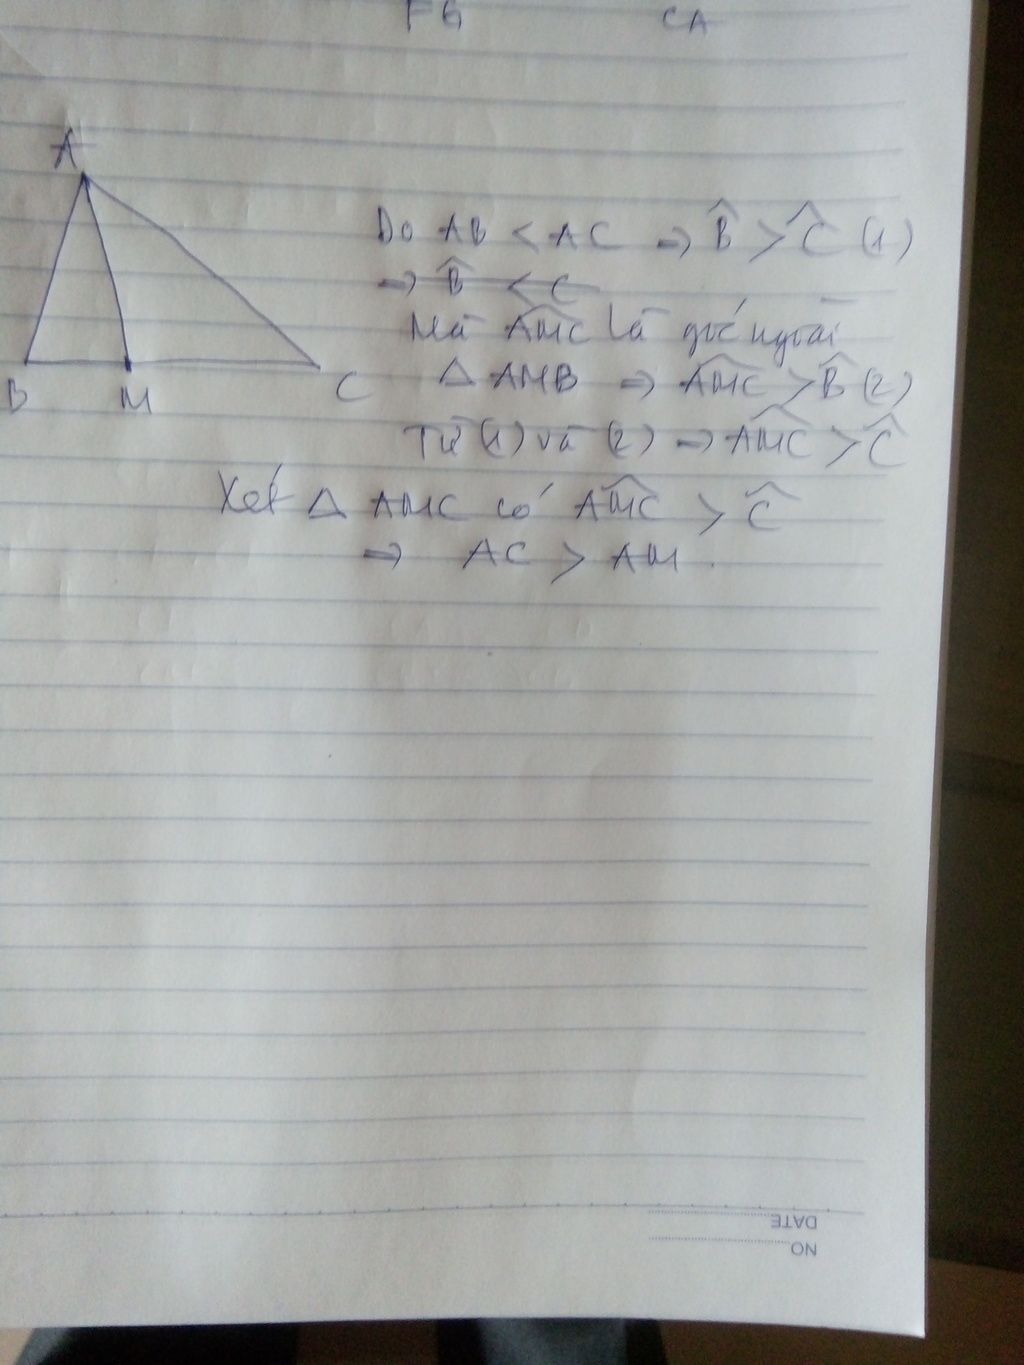 FG CA
A
Do AB < AC => B̂ > Ĉ (1)
=> B̂ < C
Mà AMC là góc ngoài
B M C
△ AMB => AMC > B̂ (2)
Từ (1) và (2) => AMC > Ĉ
Xét △ AMC có AMC > Ĉ
=> AC > AM.
DATE
NO